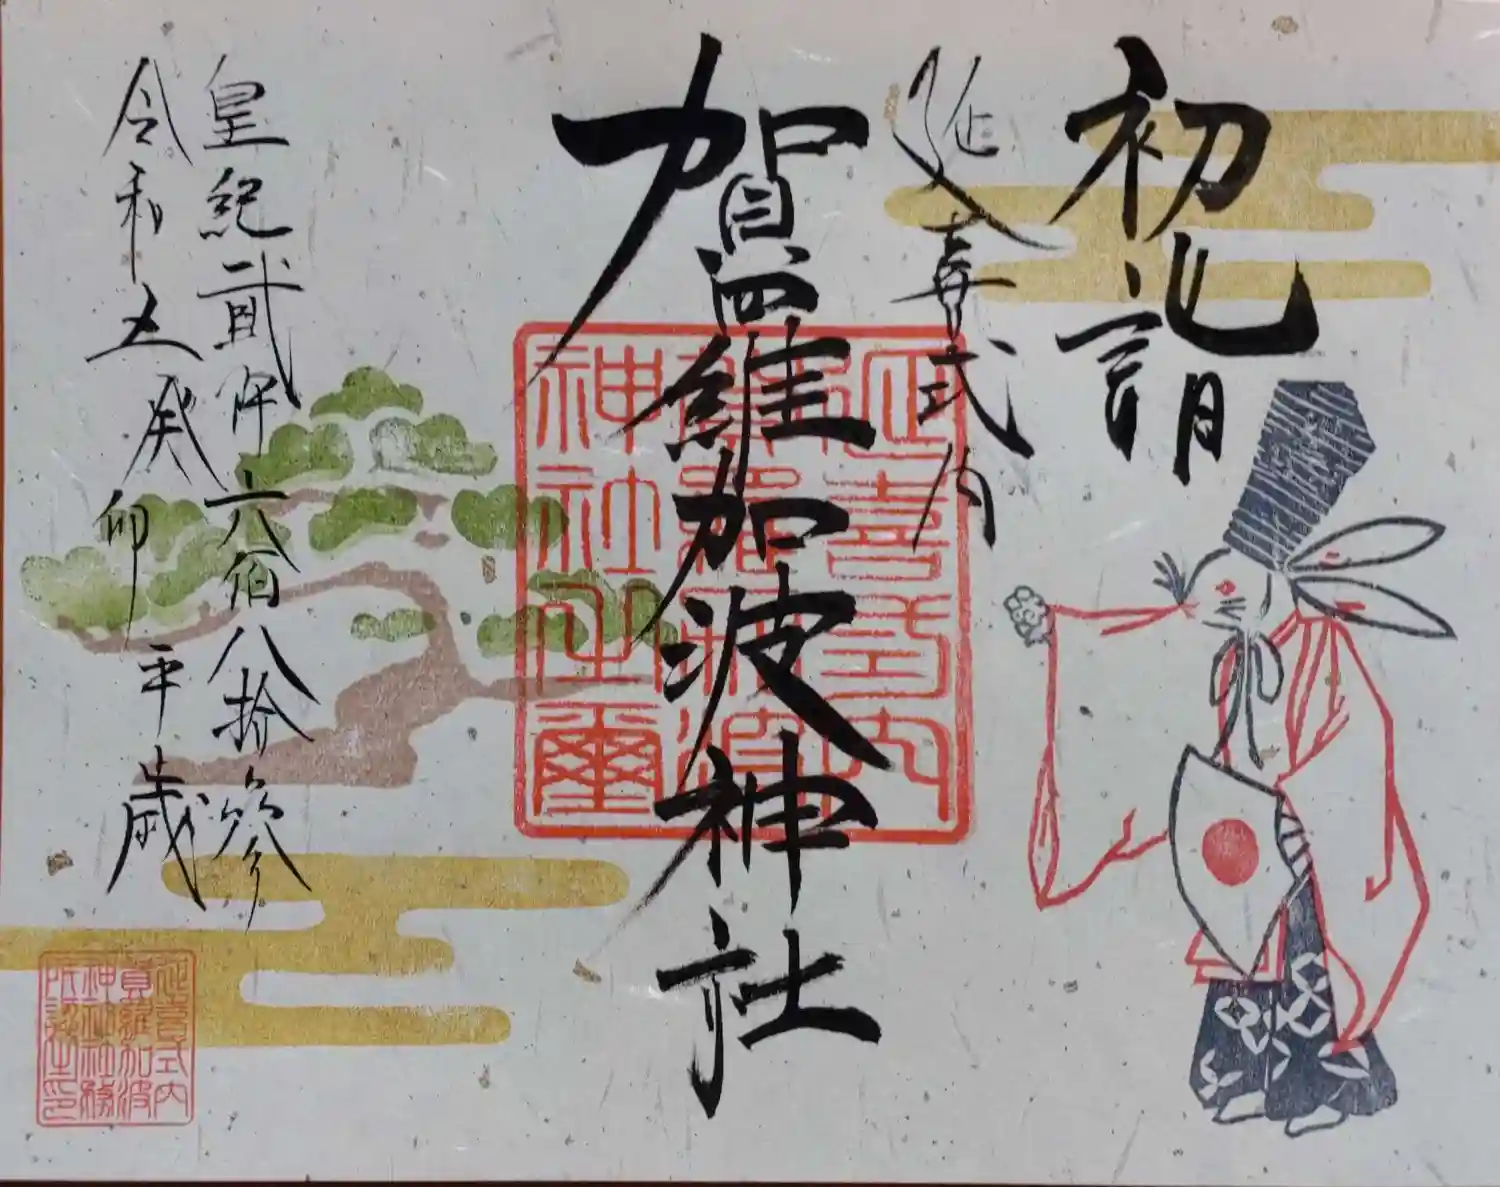 初詣
延喜式内
賀羅加波神社
皇紀貳阡六佰八拾參
令和五癸卯年歳
延喜式内
賀羅加波
神社之璽
延喜式内
賀羅加波